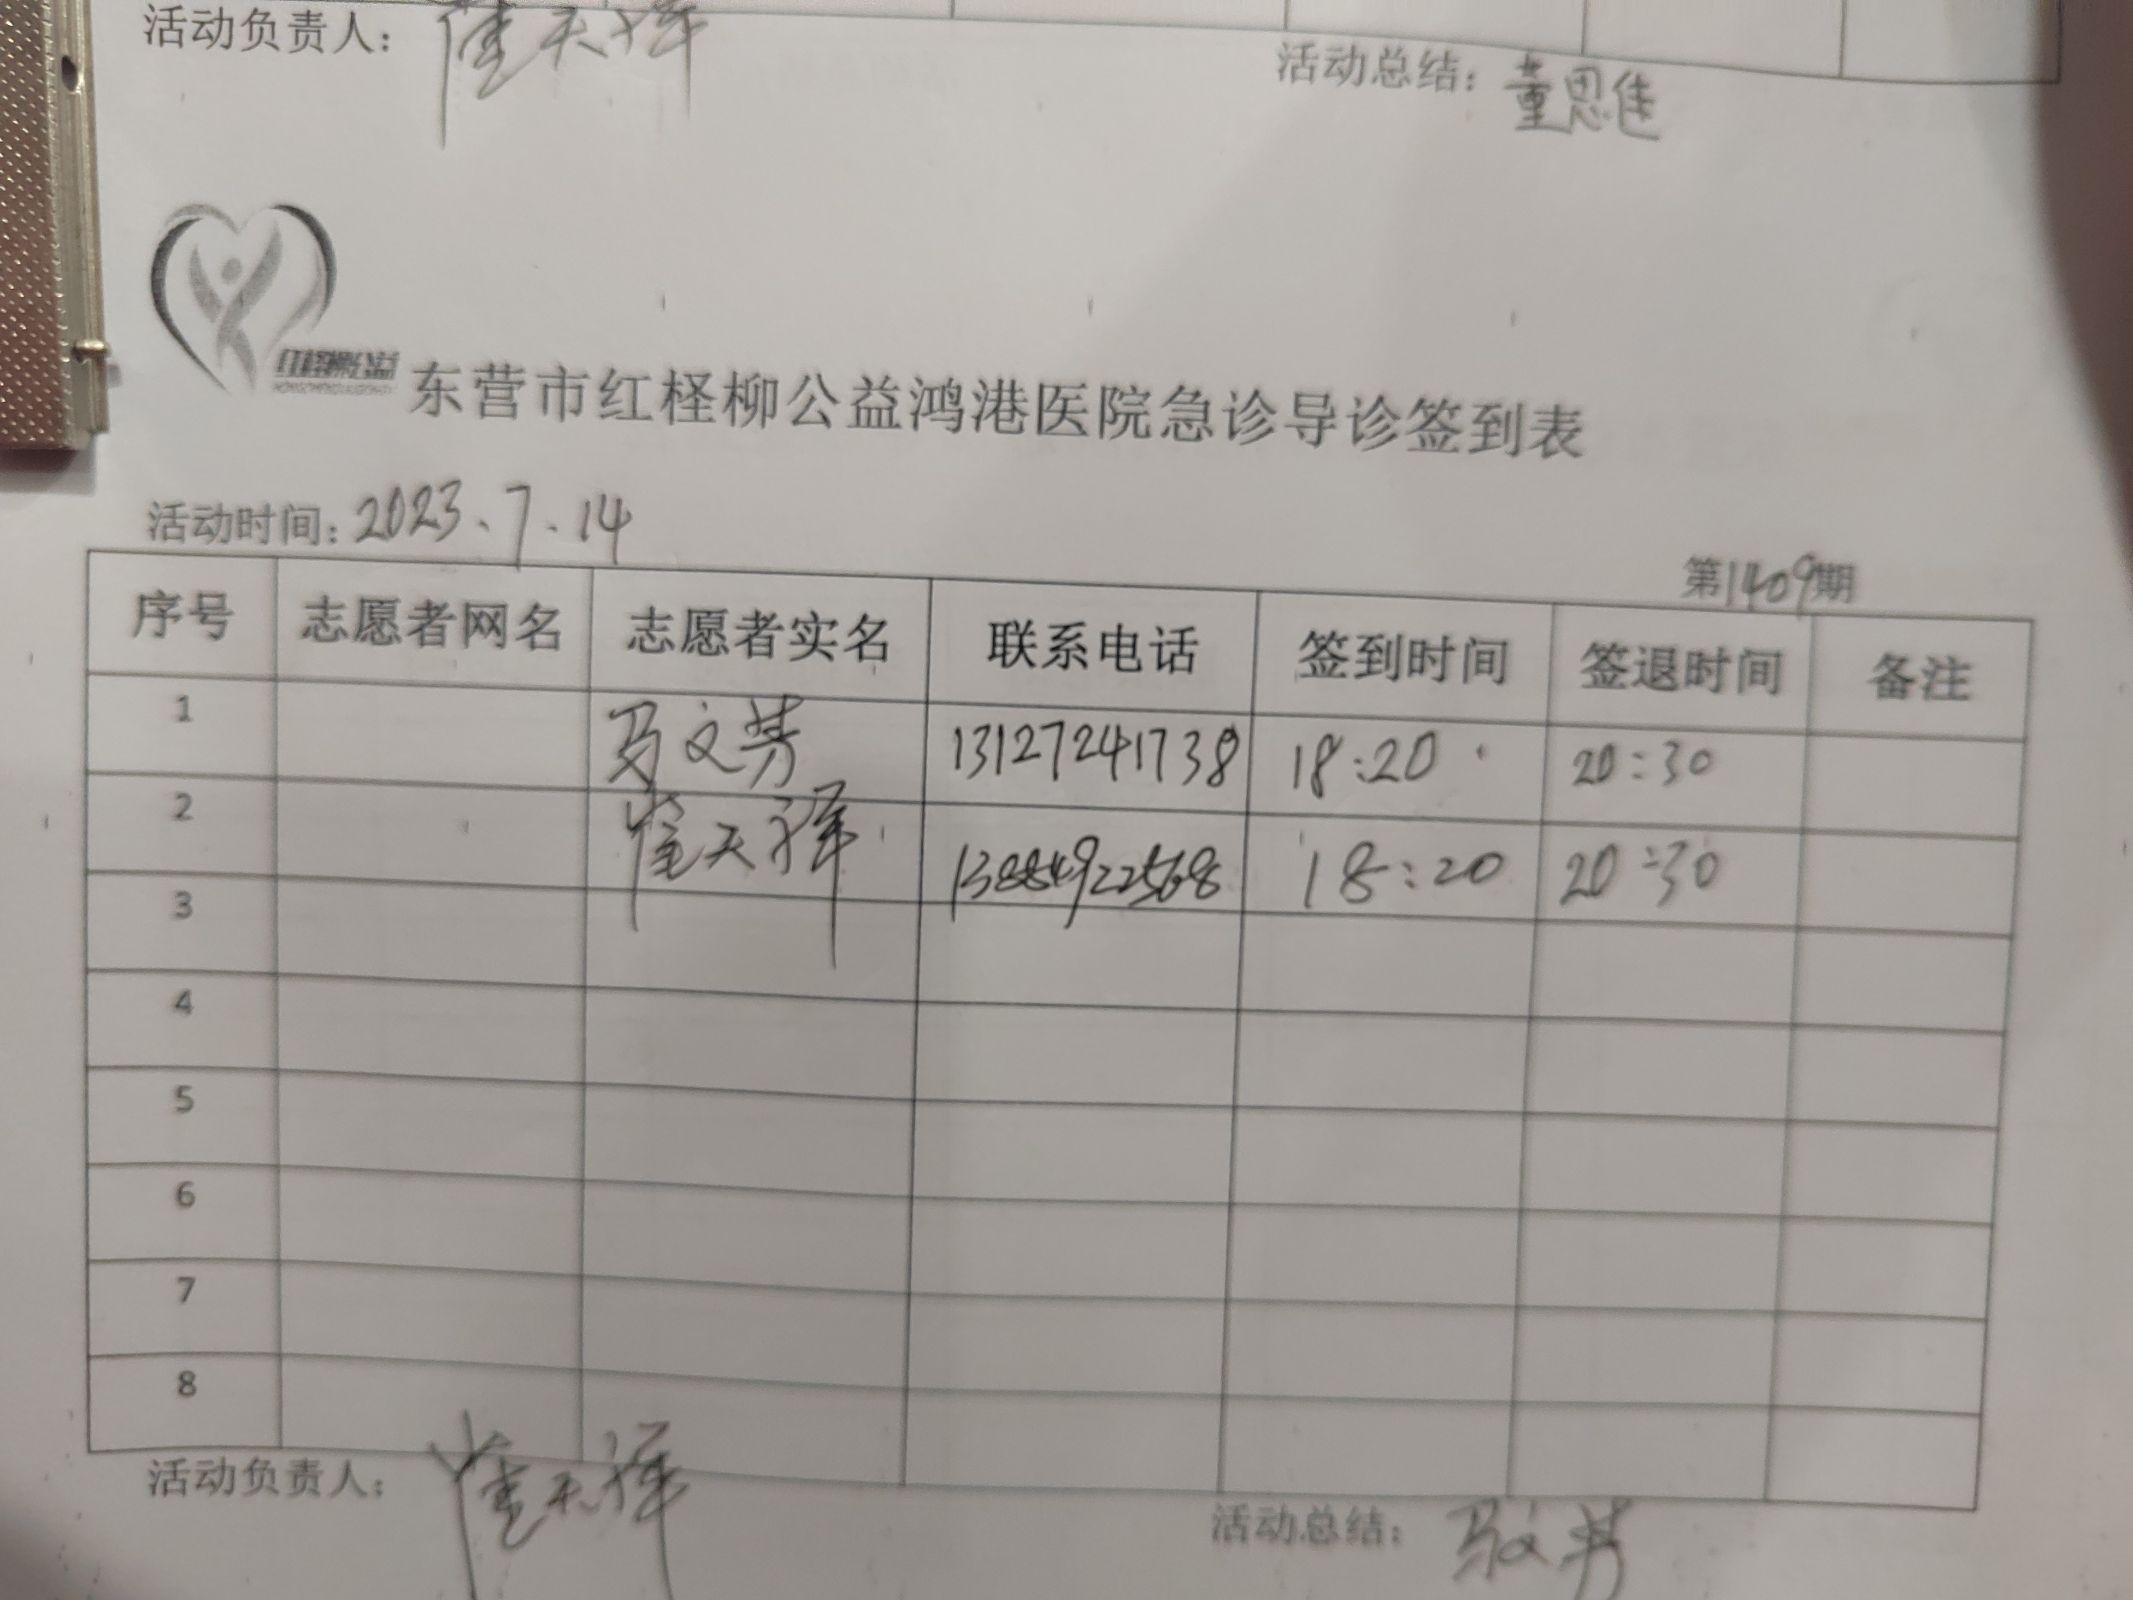 活动负责人: 崔天祥
活动总结: 董思佳
红柽柳公益
东营市红柽柳公益鸿港医院急诊导诊签到表
活动时间: 2023.7.14
第1409期
序号 志愿者网名 志愿者实名 联系电话 签到时间 签退时间 备注
1 马文芳 13127241738 18:20 20:30
2 崔天祥 13884922568 18:20 20:30
3
4
5
6
7
8
活动负责人: 崔天祥
活动总结: 马文芳